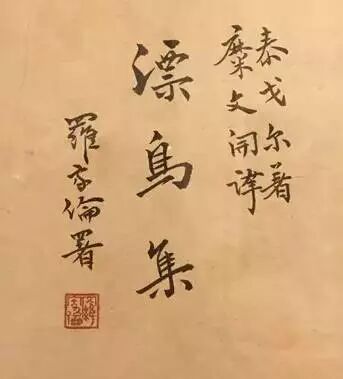 泰戈尔著
糜文開譯
漂鳥集
羅家倫署